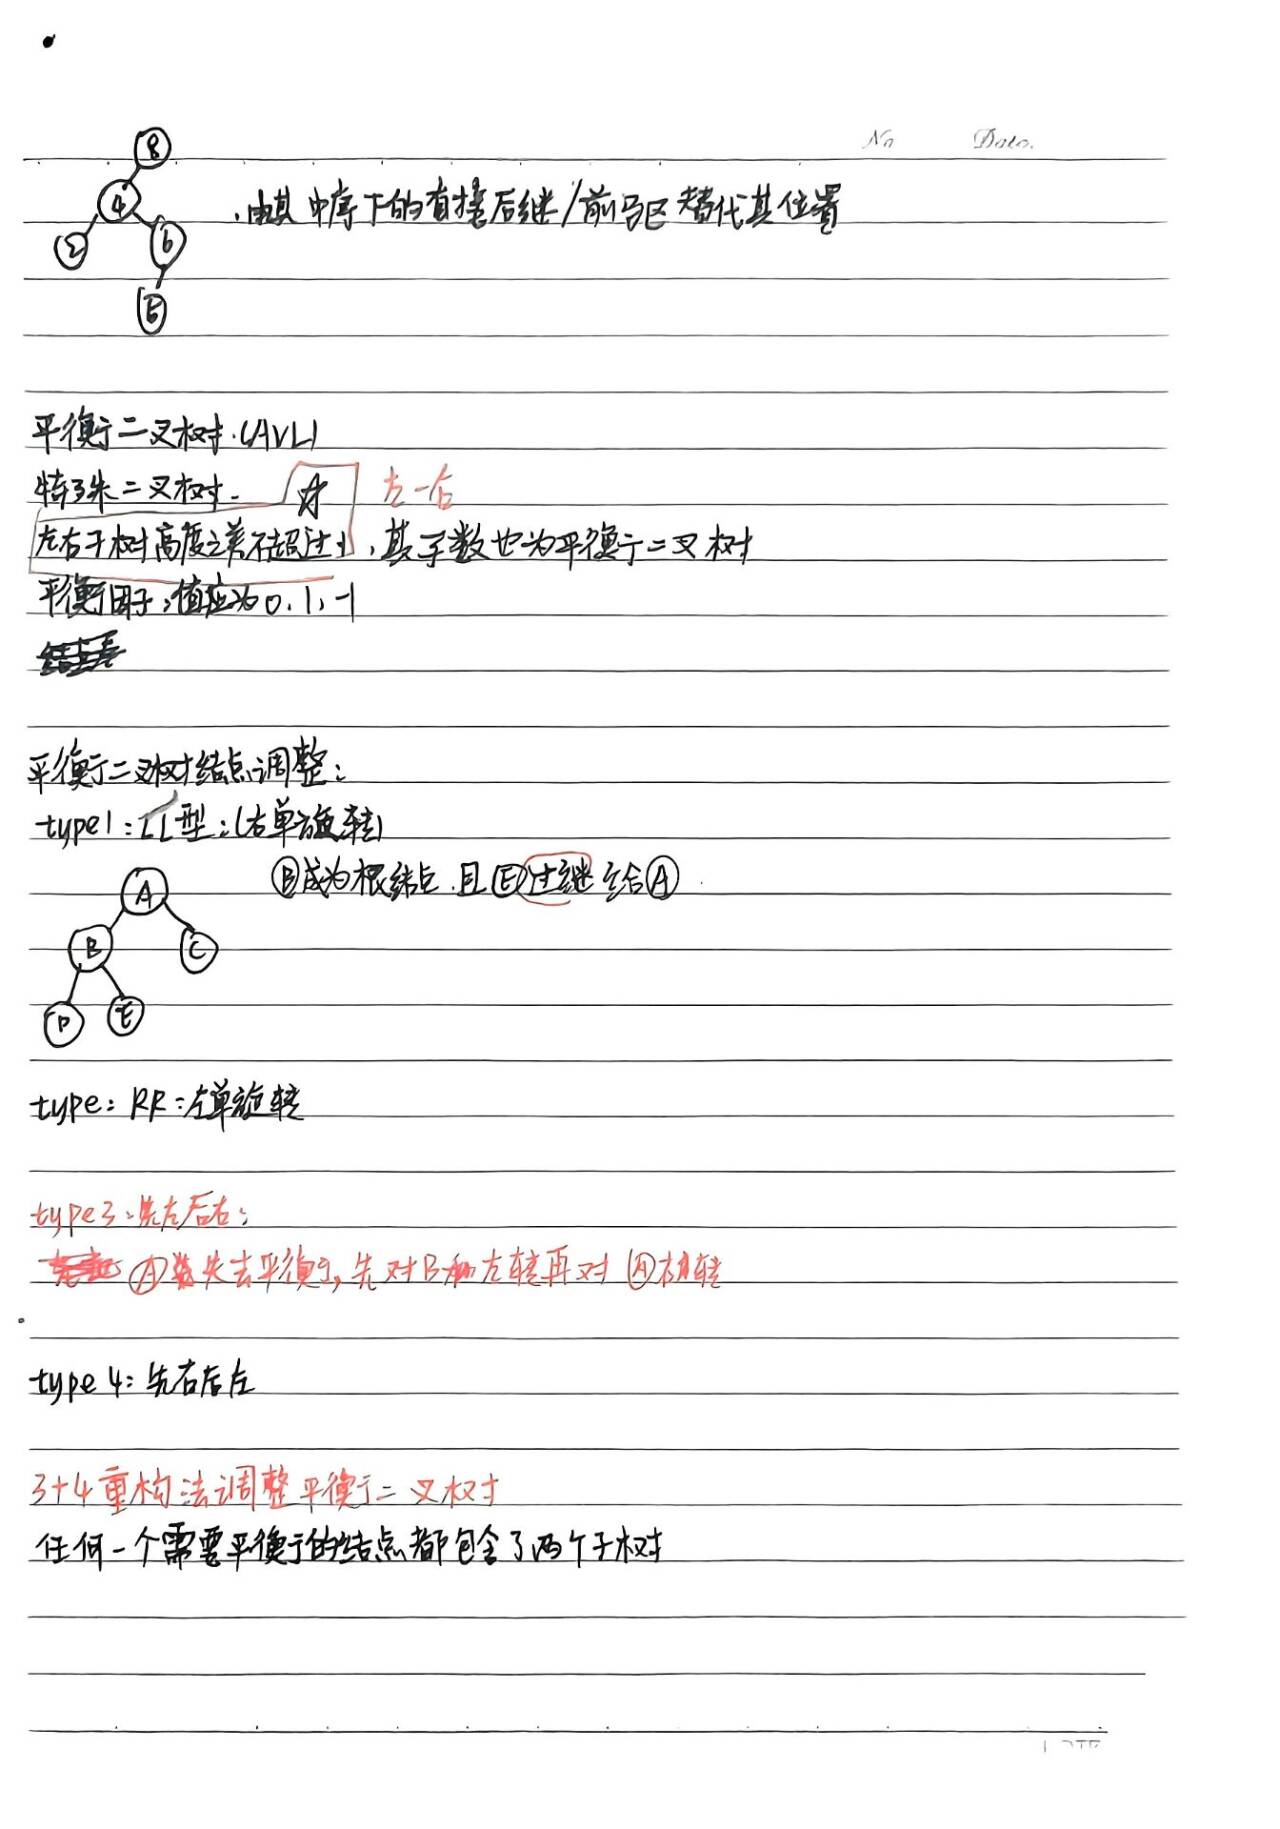 No Date.
8
4
2 6
5
.由其中序下的直接后继/前驱替代其位置
平衡二叉树.(AVL)
特殊二叉树.
左-右
左右子树高度之差不超过1,其子数也为平衡二叉树
平衡因子:值应为0,1,-1
平衡二叉树结点调整:
type1:LL型:(右单旋转)
Ⓑ成为根结点.且Ⓔ过继给Ⓐ
A
B C
D E
type:RR:左单旋转
type3:先左后右:
Ⓐ失去平衡,先对B左转再对Ⓐ右转
type4:先右后左
3+4重构法调整平衡二叉树
任何一个需要平衡的结点都包含了两个子树